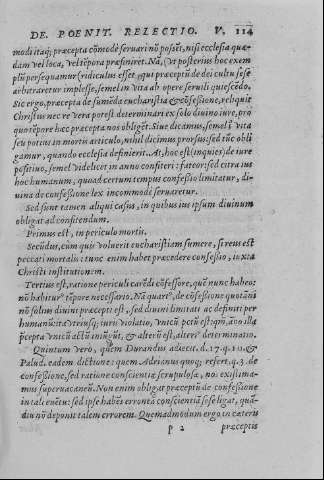 DE. POENIT. RELECTIO. V. 114
modi itaq; præcepta cōmodè seruari nō possēt, nisi ecclesia quæ-
dam vel loca, vel tēpora præfiniret. Nā, (vt posterius hoc exem
plū persequamur) ridiculus esset, qui præceptū de dei cultu sese
arbitraretur implesse, semel in vita ab opere seruili quiescēdo.
Sic ergo, præcepta de sumēda eucharistia & cōfessione, reliquit
Christus nec re vera potest determinari ex solo diuino iure, pro
quo tēpore hæc præcepta nos obligēt. Siue dicamus, semel ī vita
seu potius in mortis articulo, nihil dicimus prorsus: sed tūc obli
gamur, quando ecclesia definierit. At, hoc est (inquies) de iure
positiuo, semel videlicet in anno confiteri: fateor: sed citra ius
hoc humanum, quoad certum tempus confessio limitatur, di-
uina de confessione lex incommodè seruaretur.
Sed sunt tamen aliqui casus, in quibus ius ipsum diuinum
obligat ad confitendum.
Primus est, in periculo mortis.
Secūdus, cùm quis voluerit eucharistiam sumere, si reus est
peccati mortalis: tunc enim habet præcedere confessio, iuxta
Christi institutionem.
Tertius est, ratione periculi carēdi cōfessore, quē nunc habeo:
nō habitur tēpore necessario. Nā quartº, de cōfessione quotāni
nō solius diuini præcepti est, sed diuini limitati ac definiti per
humanū: ita vtrusq; iuris violatio, vnicū pctū est: qm, abo illa
pcepta vnicū actū iniūgūt, & alterū est, alteriº determinatio.
Quintum vero, quem Durandus adiecit. d. 17. q. 10. &
Palud. eadem dictione: quem Adrianus quoq; refert. q. 3. de
confessione, sed ratione conscientiæ scrupulosæ, no. existima-
mus superuacaneū. Non enim obligat præceptū de confessione
in tali euētu: sed ipse habēs erronea conscientiā se se ligat, quā-
diu nō deponit talem errorem. Quemadmodum ergo in cæteris
p 2 præceptis